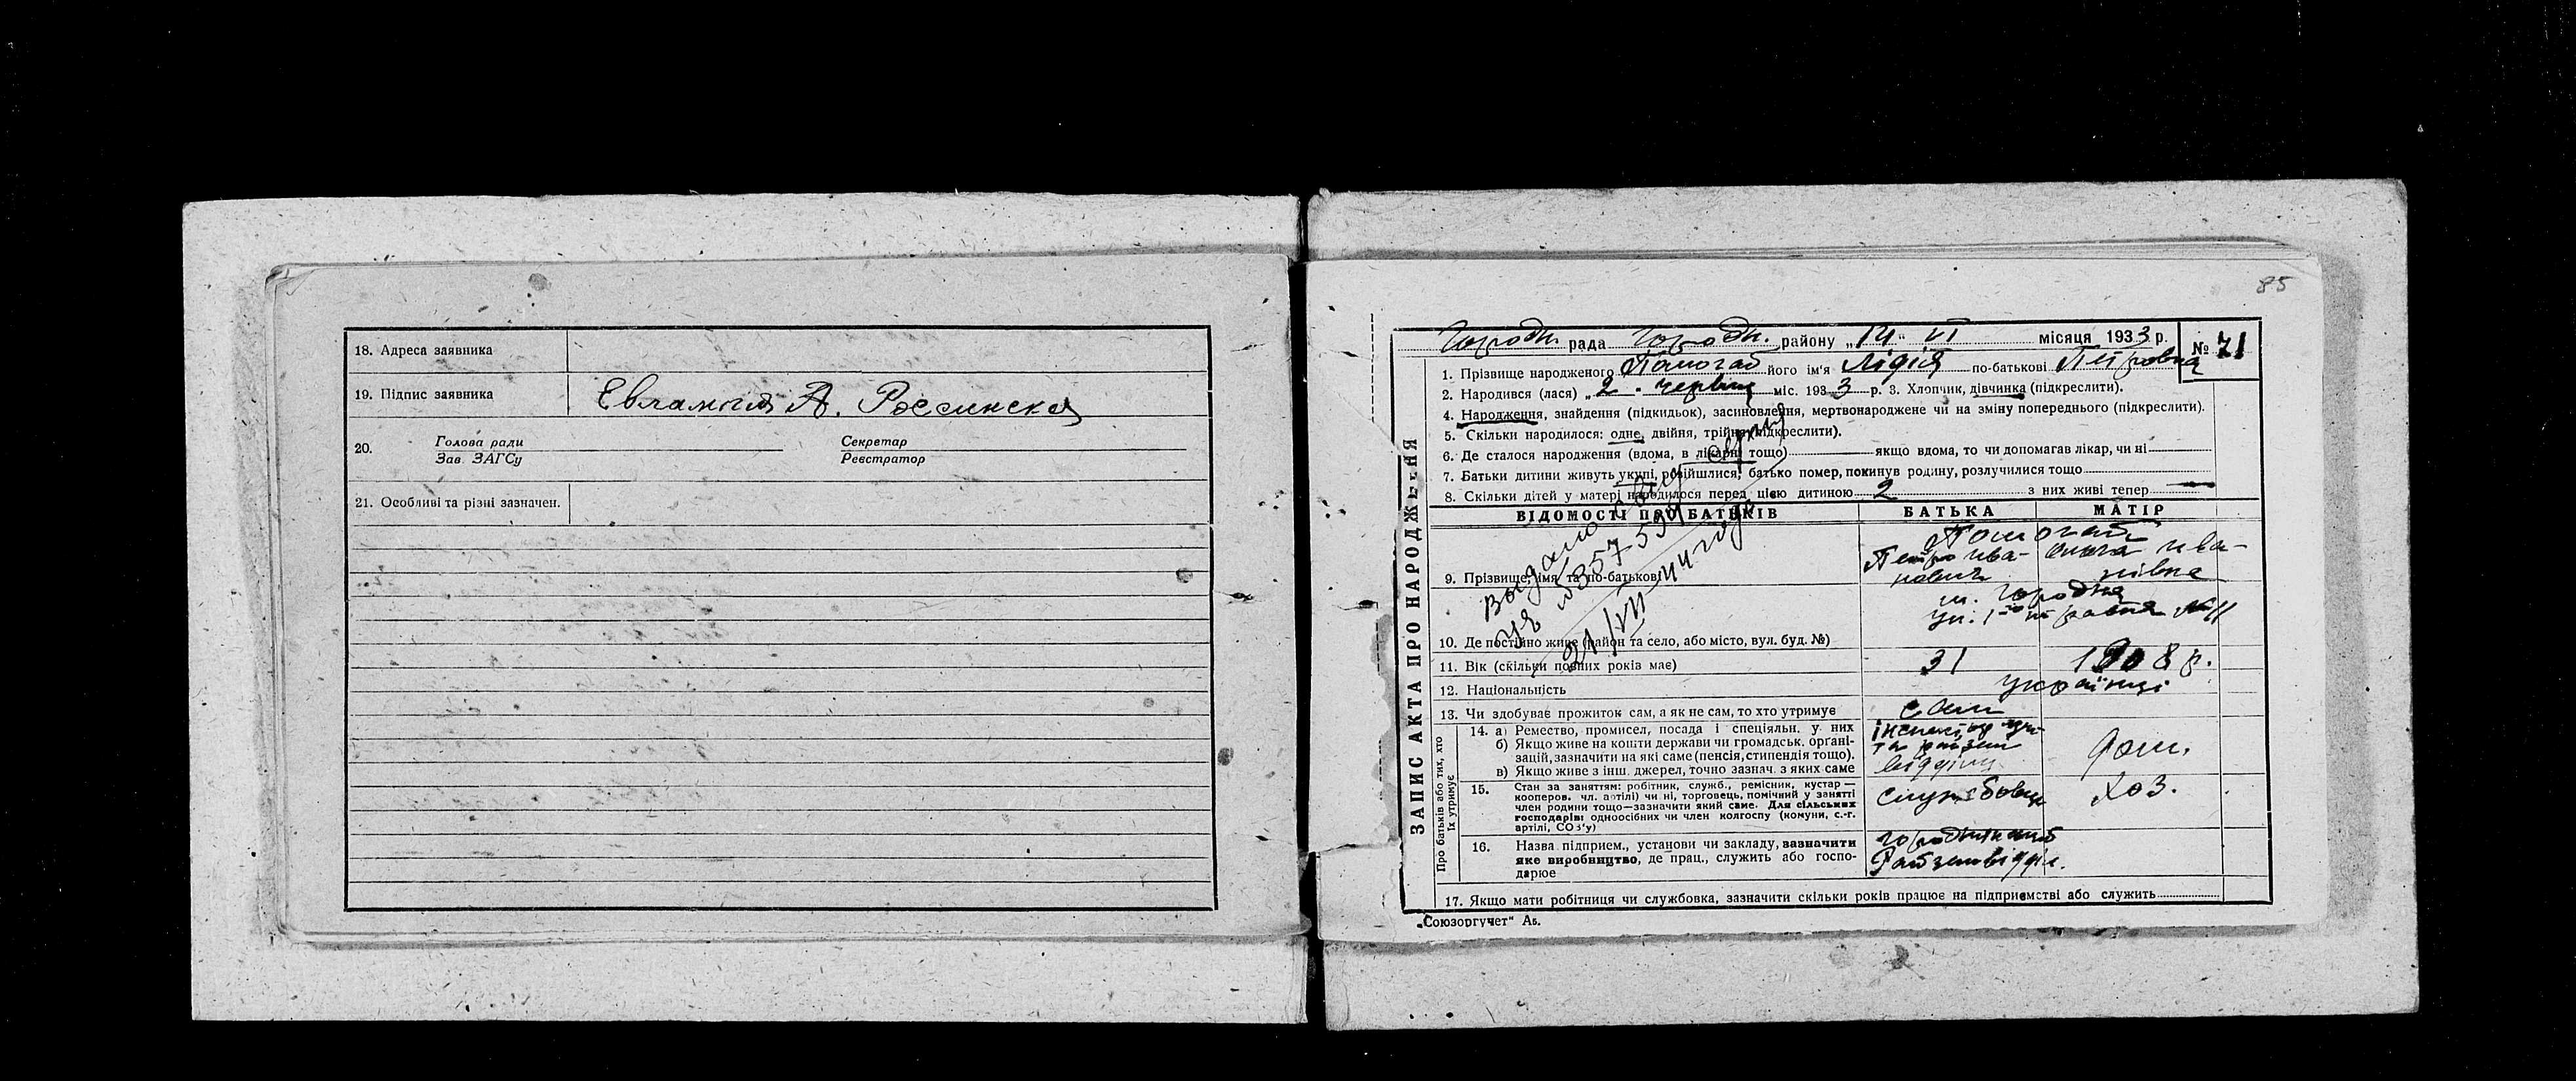 18. Адреса заявника
19. Підпис заявника Евлампия А. Россинская
20. Голова ради Секретар
Зав. ЗАГСу Реєстратор
21. Особливі та різні зазначен.
85
ЗАПИС АКТА ПРО НАРОДЖЕННЯ
Городн. рада Городн. району „14" VI місяця 1933 р. № 71
1. Прізвище народженого Помогай його ім'я Лідія по-батькові Петровна
2. Народився (лася) „2" червня міс. 1933 р. 3. Хлопчик, дівчинка (підкреслити).
4. Народження, знайдення (підкидьок), засиновлення, мертвонароджене чи на зміну попереднього (підкреслити).
5. Скільки народилося: одне, двійня, трійня (підкреслити).
6. Де сталося народження (вдома, в лікарні тощо) якщо вдома, то чи допомагав лікар, чи ні
7. Батьки дитини живуть укупі, розійшлися, батько помер, покинув родину, розлучилися тощо
8. Скільки дітей у матері народилося перед цією дитиною 2 з них живі тепер —
ВІДОМОСТІ ПРО БАТЬКІВ БАТЬКА МАТІР
Помогай
Петро Ива- Ива-
нович нівна
9. Прізвище, імя та по-батькові
м. Городня
ул. 1го травня № 11
10. Де постійно живе (район та село, або місто, вул. буд. №)
11. Вік (скільки повних років має) 31 1908 р.
12. Національність українці
13. Чи здобуває прожиток сам, а як не сам, то хто утримує сам
Про батьків або тих, хто
їх утримує
14. а) Ремество, промисел, посада і спеціяльн. у них
б) Якщо живе на кошти держави чи громадськ. органі-
зацій, зазначити на які саме (пенсія, стипендія тощо).
в) Якщо живе з інш. джерел, точно зазнач. з яких саме
відділу
дом.
15. Стан за заняттям: робітник, служб., ремісник, кустар—
кооперов. чл. артілі) чи ні, торговець, помічний у занятті
член родини тощо—зазначити який саме. Для сільських
господарів: одноосібних чи член колгоспу (комуни, с.-г.
артілі, СОЗ'у)
службовець хоз.
16. Назва підприєм., установи чи закладу, зазначити
яке виробництво, де прац., служить або госпо-
дарює
Городнянський
Райземвідділ.
17. Якщо мати робітниця чи службовка, зазначити скільки років працює на підприємстві або служить
„Союзоргучет" Ав.
Выдано
УБ № 357534
21/VII-44 года